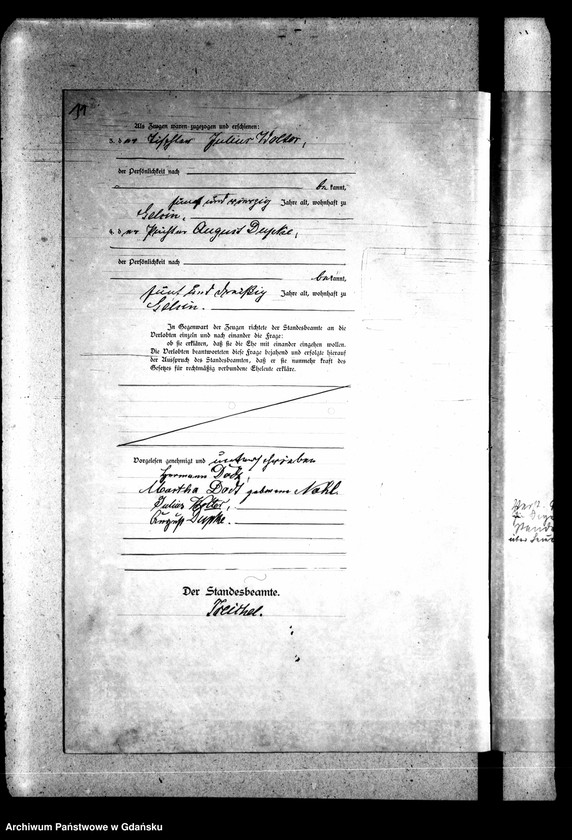 Als Zeugen waren zugezogen und erschienen:
3. der Tischler Julius Wolter,
der Persönlichkeit nach
be kannt,
fünf und vierzig Jahre alt, wohnhaft zu
4. der August
der Persönlichkeit nach
bekannt,
fünf und dreißig Jahre alt, wohnhaft zu
In Gegenwart der Zeugen richtete der Standesbeamte an die
Verlobten einzeln und nach einander die Frage:
ob sie erklären, daß sie die Ehe mit einander eingehen wollen.
Die Verlobten beantworteten diese Frage bejahend und erfolgte hierauf
der Ausspruch des Standesbeamten, daß er sie nunmehr kraft des
Gesetzes für rechtmäßig verbundene Eheleute erkläre.
Vorgelesen genehmigt und unterschrieben
Hermann Dodt,
Martha Dodt geborene Nohl.
Julius Wolter,
August
Der Standesbeamte.
Archiwum Państwowe w Gdańsku